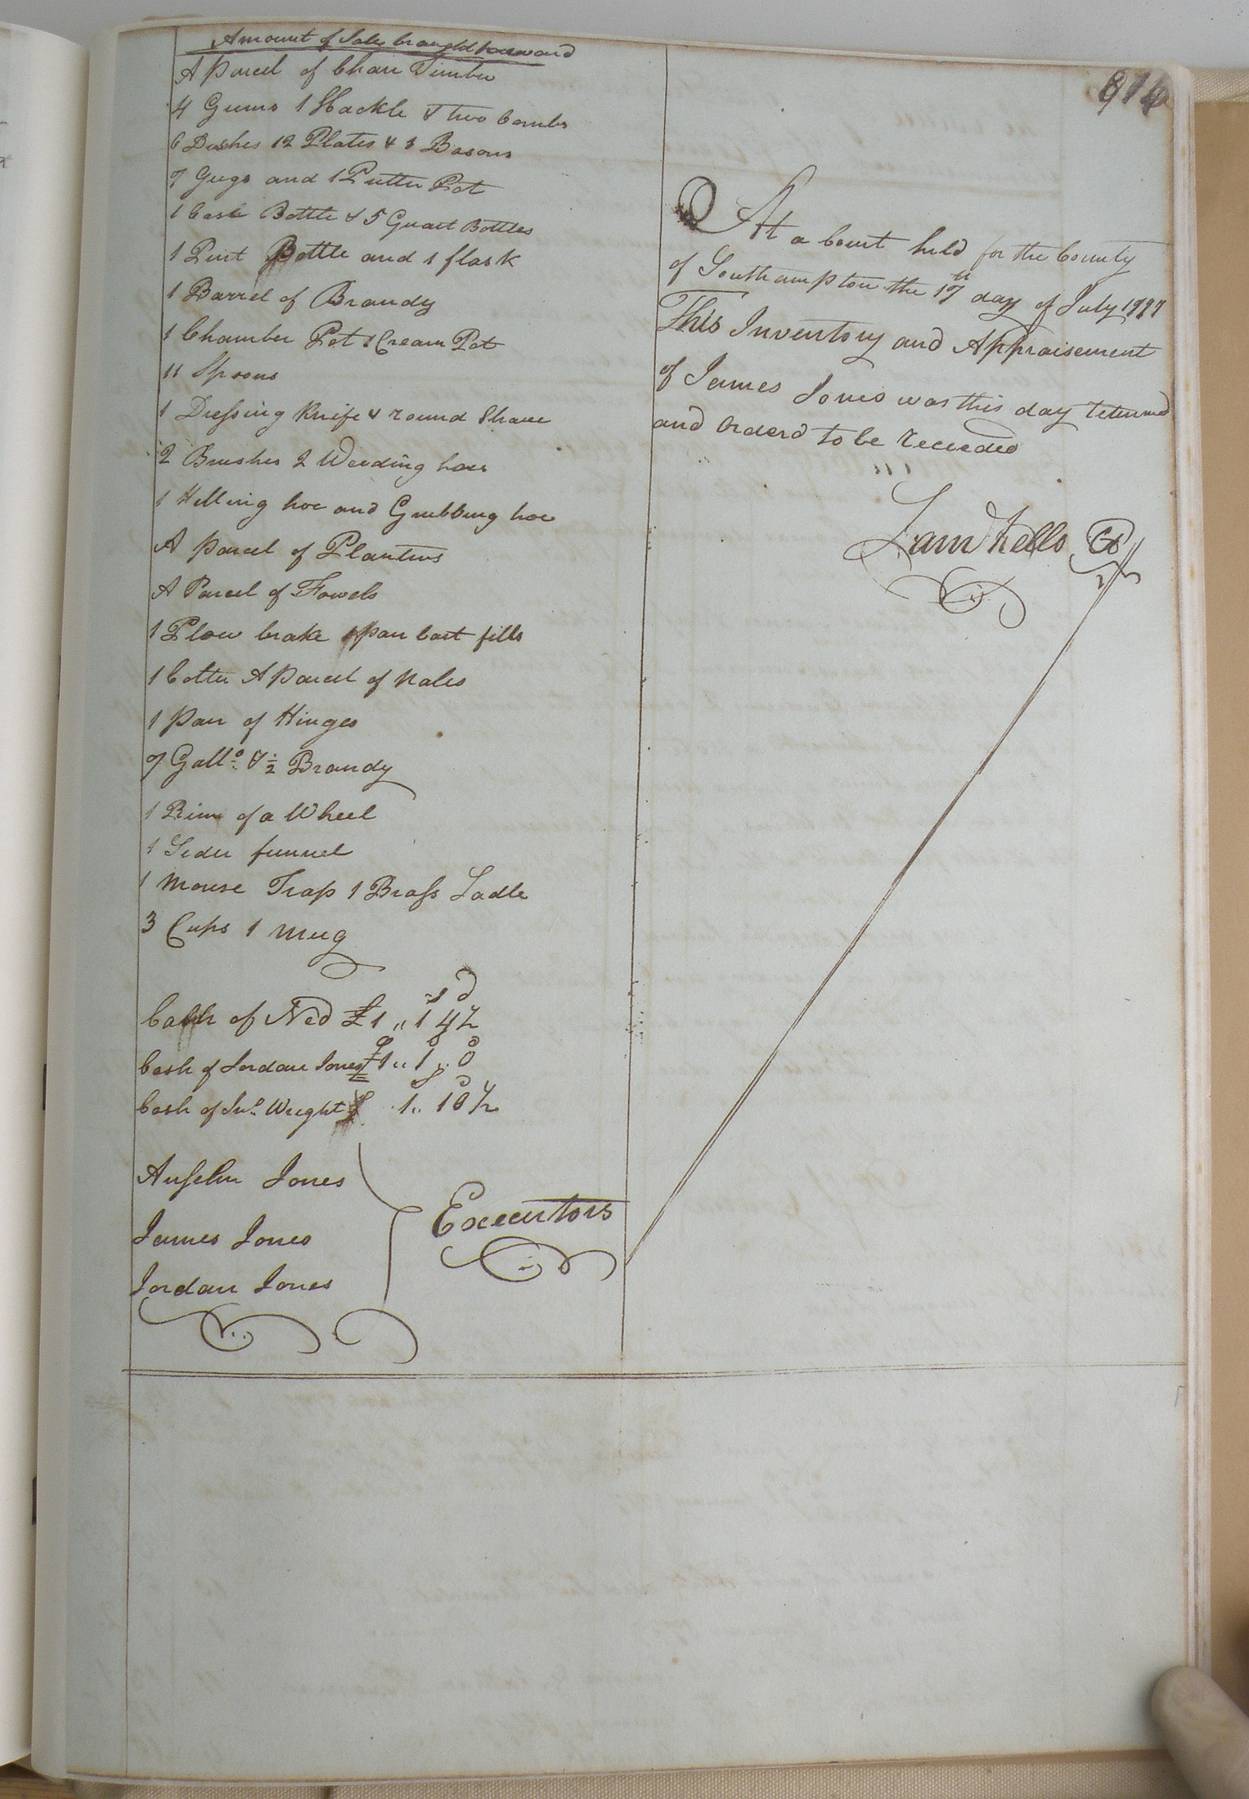 Amount of Sales brought forward
A Parcel of Chair Timber
4 Gums 1 Hackle & two Combs
6 Dishes 12 Plates & 3 Basons
7 Gugs and 1 Putter Pot
1 Case Bottle & 5 Quart Bottles
1 Pint Bottle and 1 flask
1 Barrel of Brandy
1 Chamber Pot 1 Cream Pot
11 Spoons
1 Dressing Knife & round Shave
2 Brushes 2 Weeding hoes
1 Hilling hoe and Grubbing hoe
A parcel of Planters
A Parcel of Fowels
1 Plow brake 1 pair Cart fills
1 Cotter A Parcel of Nales
1 pair of Hinges
7 Gallo. & 1/2 Brandy
1 Rim of a Wheel
1 Sider funnel
1 Mouse Trap 1 Brass Ladle
3 Cups 1 Mug
s d
Cash of Ned £1 ,, 1 4 1/2
Cash of Jordan Jones £1 ,, 1 ,, 0
Cash of Jno. Wright £ 1 ,, 10 1/2
Anselm Jones
James Jones
Jordan Jones
Executors
814
At a Court held for the County
of Southampton the 17th day of July 1787
This Inventory and Appraisement
of James Jones was this day returned
and Orderd to be recorded
Sam Kello CC